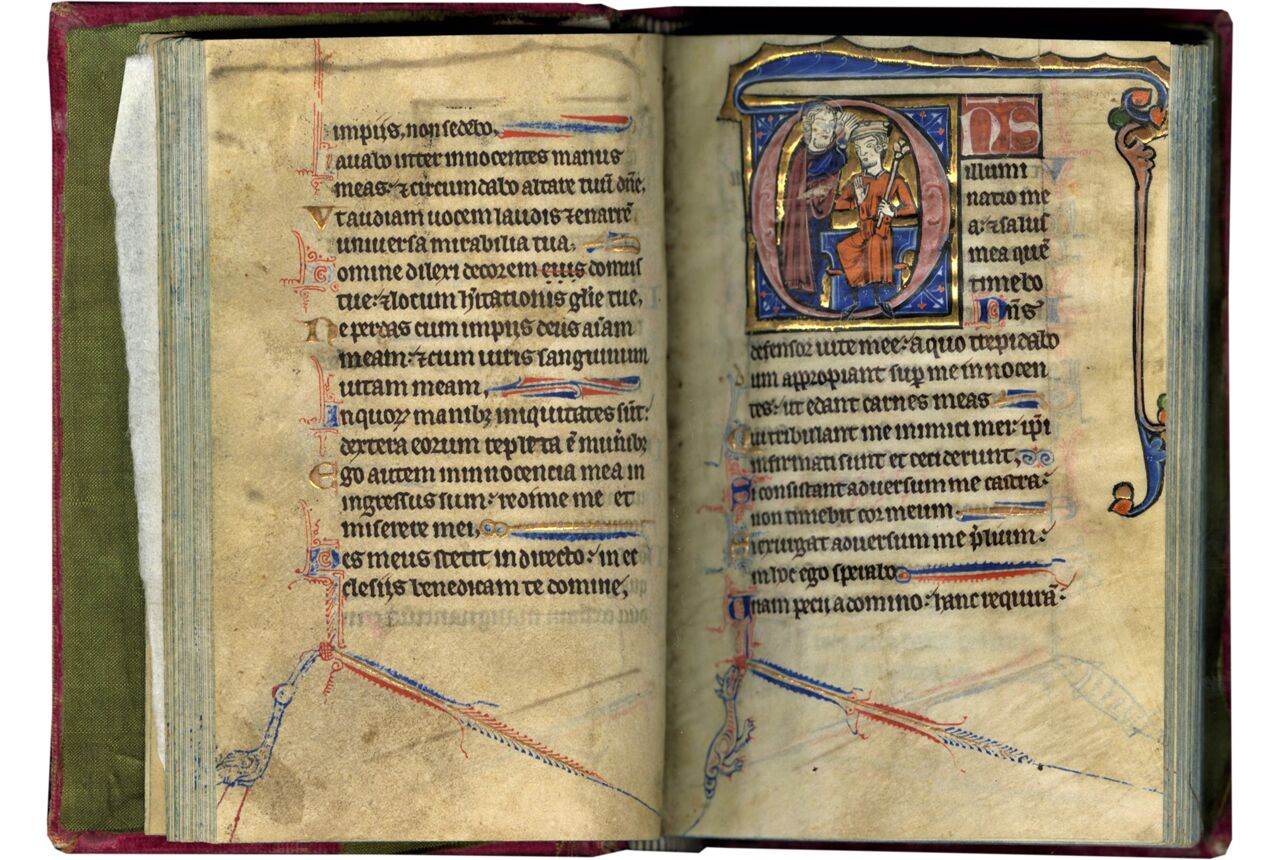 impiis, non sedebo,
auabo inter innocentes manus
meas: ⁊ circumdabo altare tuū dñe,
Vt audiam uocem laudis ⁊ enarrē
universa mirabilia tua,
Domine dilexi decorem eius domus
tue: ⁊ locum hītationis glīe tue,
Ne perdas cum impiis deus aīam
meam: ⁊ cum uiris sanguinum
uitam meam,
In quoꝝ manibꝫ iniquitates sūt:
dextera eorum repleta ē mun̄ibꝫ
Ego autem in innocencia mea in
ingressus sum: redime me et
miserere mei,
Pes meus stetit in directo: in ec
clesiis benedicam te domine,
DNS
illumi
natio me
a: ⁊ salus
mea quē
timebo
Dn̄s
defensor uite mee: a quo trepidabo
Dum appropiant suꝑ me in nocen
tes: ut edant carnes meas
Qui tribulant me inimici mei: ip̄i
infirmati sunt et ceciderunt,
Si consistant aduersum me castra:
non timebit cor meum,
Si exurgat aduersum me p̄lium:
in hoc ego sperabo
Unam pecii a domino: hanc requirā: